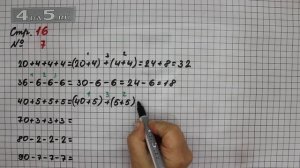 4 в 5 RU
Стр. 16
№ 7
20+4+4+4=(20+4)+(4+4)=24+8=32
36-6-6-6=30-6-6=24-6=18
40+5+5+5=(40+5)+(5+5)
70+3+3+3=
80-2-2-2=
90-7-7-7=